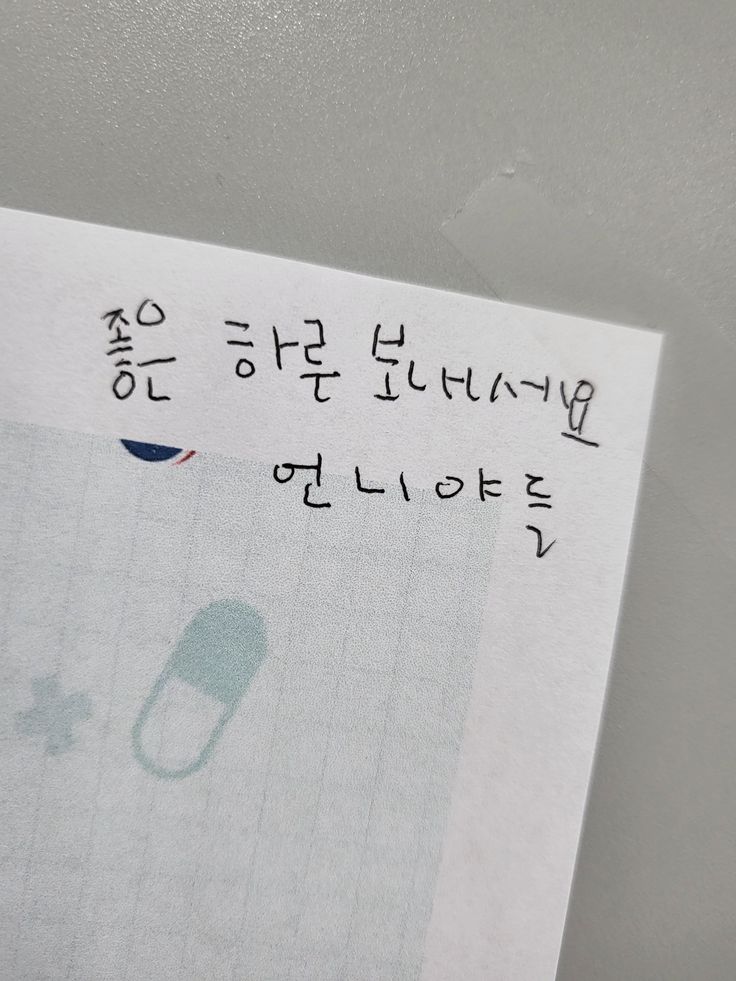 좋은 하루 보내세요
언니야들